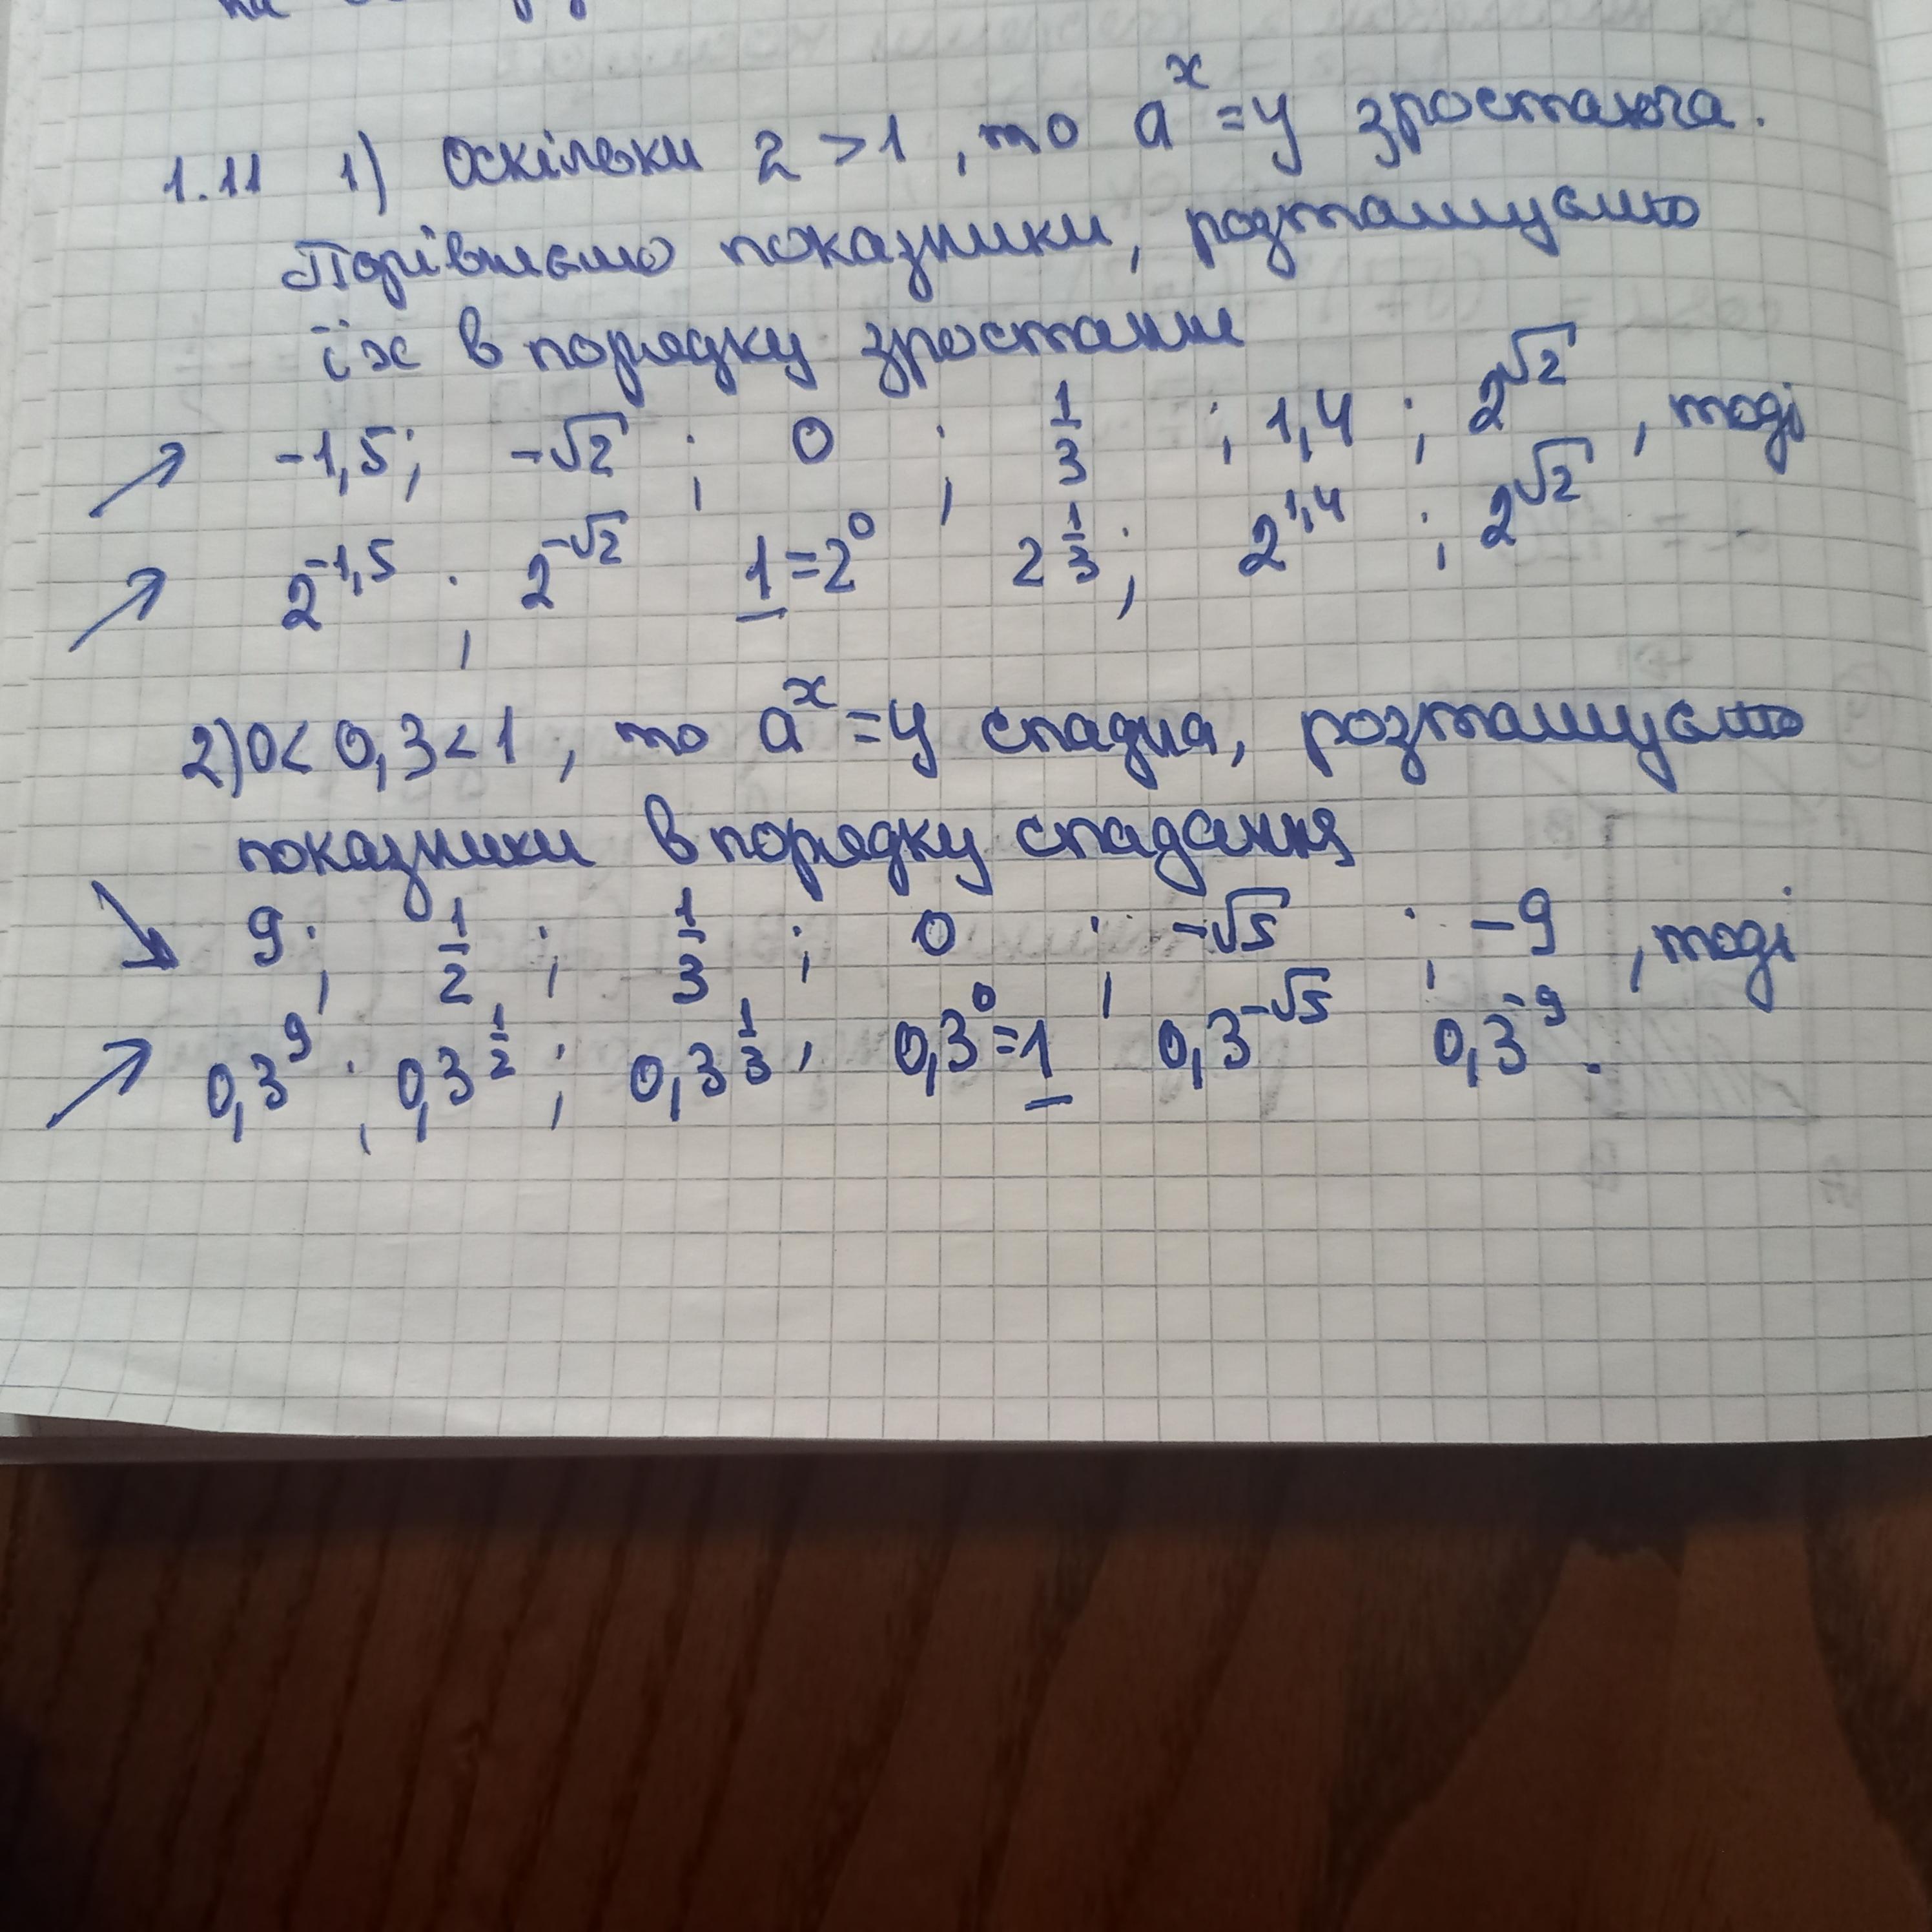 на
1.11 1) Оскільки 2 > 1, то a^x = y зростаюча.
Порівняємо показники, розташуємо
їх в порядку зростання
↗ -1,5; -√2; 0; 1/3; 1,4; 2^√2, тоді
↗ 2^-1,5; 2^-√2 1=2^0 2^1/3; 2^1,4; 2^√2
2) 0 < 0,3 < 1, то a^x = y спадна, розташуємо
показники в порядку спадання
↘ 9; 1/2; 1/3; 0; -√5; -9, тоді
↗ 0,3^9; 0,3^1/2; 0,3^1/3, 0,3^0=1 0,3^-√5 0,3^-9.